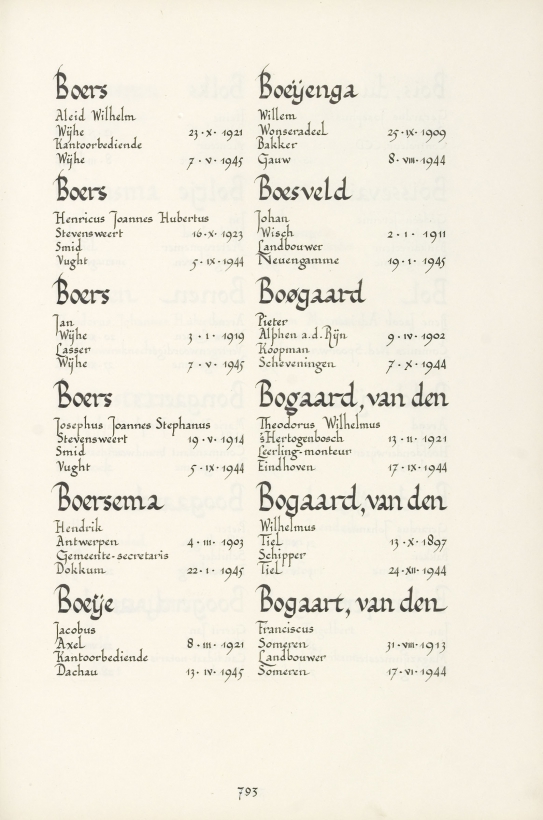 Boers
Aleid Wilhelm
Wÿhe 23 · X · 1921
Kantoorbediende
Wÿhe 7 · V · 1945
Boers
Henricus Joannes Hubertus
Stevensweert 16 · X · 1923
Smid
Vught 5 · IX · 1944
Boers
Jan
Wÿhe 3 · I · 1919
Lasser
Wÿhe 7 · V · 1945
Boers
Josephus Joannes Stephanus
Stevensweert 19 · V · 1914
Smid
Vught 5 · IX · 1944
Boersema
Hendrik
Antwerpen 4 · III · 1903
Gemeente-secretaris
Dokkum 22 · I · 1945
Boeÿe
Jacobus
Axel 8 · III · 1921
Kantoorbediende
Dachau 13 · IV · 1945
Boeÿenga
Willem
Wonseradeel 25 · IX · 1909
Bakker
Gauw 8 · VIII · 1944
Boesveld
Johan
Wisch 2 · I · 1911
Landbouwer
Neuengamme 19 · I · 1945
Boøgaard
Pieter
Alphen a.d. Rÿn 9 · IV · 1902
Koopman
Scheveningen 7 · X · 1944
Bogaard, van den
Theodorus Wilhelmus
'sHertogenbosch 13 · II · 1921
Leerling-monteur
Eindhoven 17 · IX · 1944
Bogaard, van den
Wilhelmus
Tiel 13 · X · 1897
Schipper
Tiel 24 · XII · 1944
Bogaart, van den
Franciscus
Someren 31 · VIII · 1913
Landbouwer
Someren 17 · VI · 1944
793